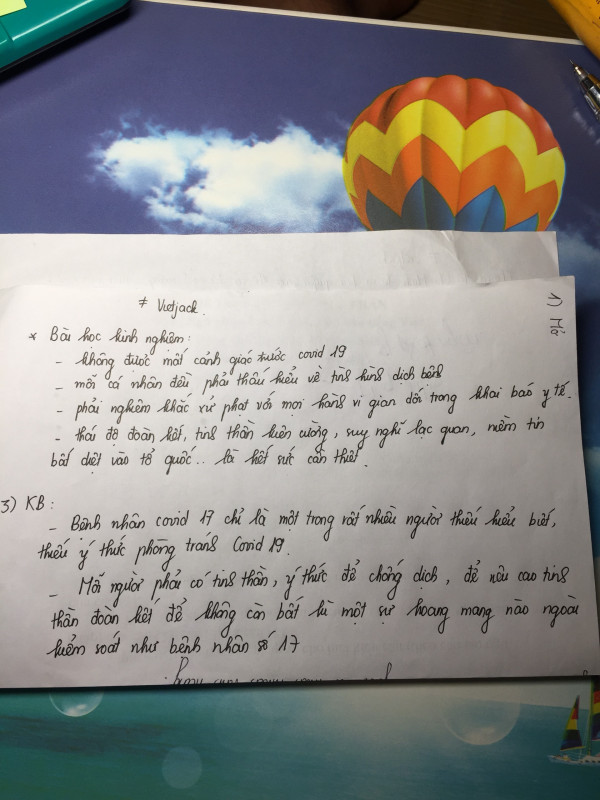 # Vietjack.
* Bài học kinh nghiệm:
- không được mất cảnh giác trước covid 19
- mỗi cá nhân đều phải thấu hiểu về tình hình dịch bệnh
- phải nghiêm khắc xử phạt với mọi hành vi gian dối trong khai báo y tế.
- thái độ đoàn kết, tinh thần kiên cường, suy nghĩ lạc quan, niềm tin
bất diệt vào tổ quốc.. là hết sức cần thiết.
3) KB:
- Bệnh nhân covid 17 chỉ là một trong rất nhiều người thiếu hiểu biết,
thiếu ý thức phòng tránh Covid 19.
- Mỗi người phải có tinh thần, ý thức để chống dịch, để nêu cao tinh
thần đoàn kết để không còn bất kì một sự hoang mang nào ngoài
kiểm soát như bệnh nhân số 17
1) Mở